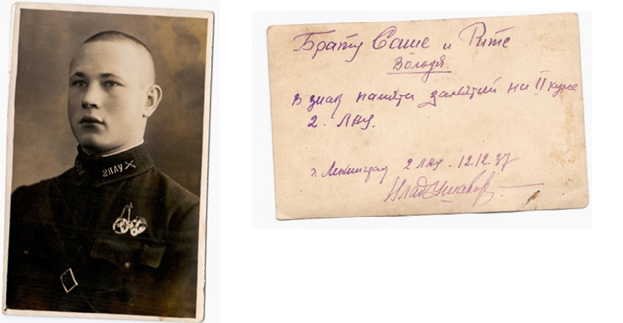 2ЛАУ
Брату Саше и Рите
Володя
В знак памяти занятий на II курсе
2. ЛАУ.
г. Ленинград 2 ЛАУ. 12.12.37